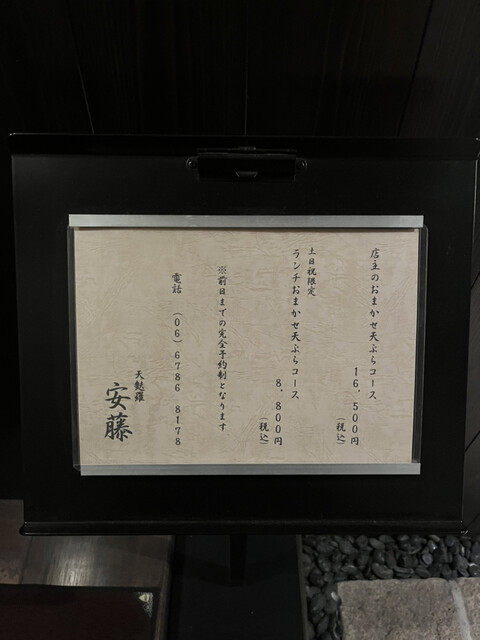 店主のおまかせ天ぷらコース
16,500円
(税込)
土日祝限定
ランチおまかせ天ぷらコース
8,800円
(税込)
※前日までの完全予約制となります
電話 (06)6786 8178
天麩羅
安藤